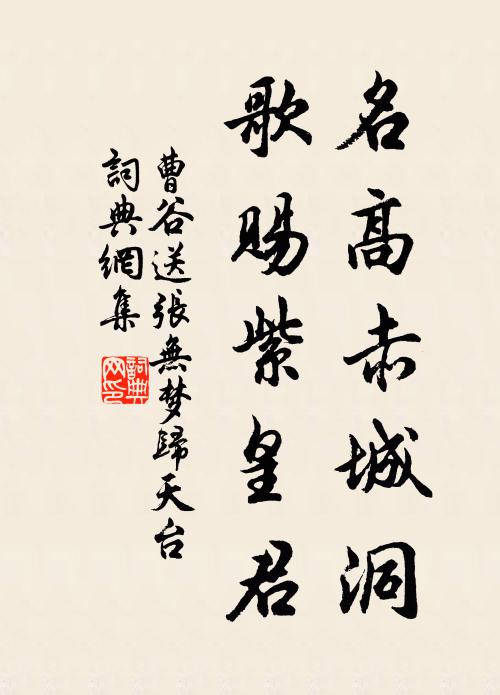 名高赤城洞
歌賜紫皇君
曹谷送張無梦歸天台
詞典網集
詞典网印